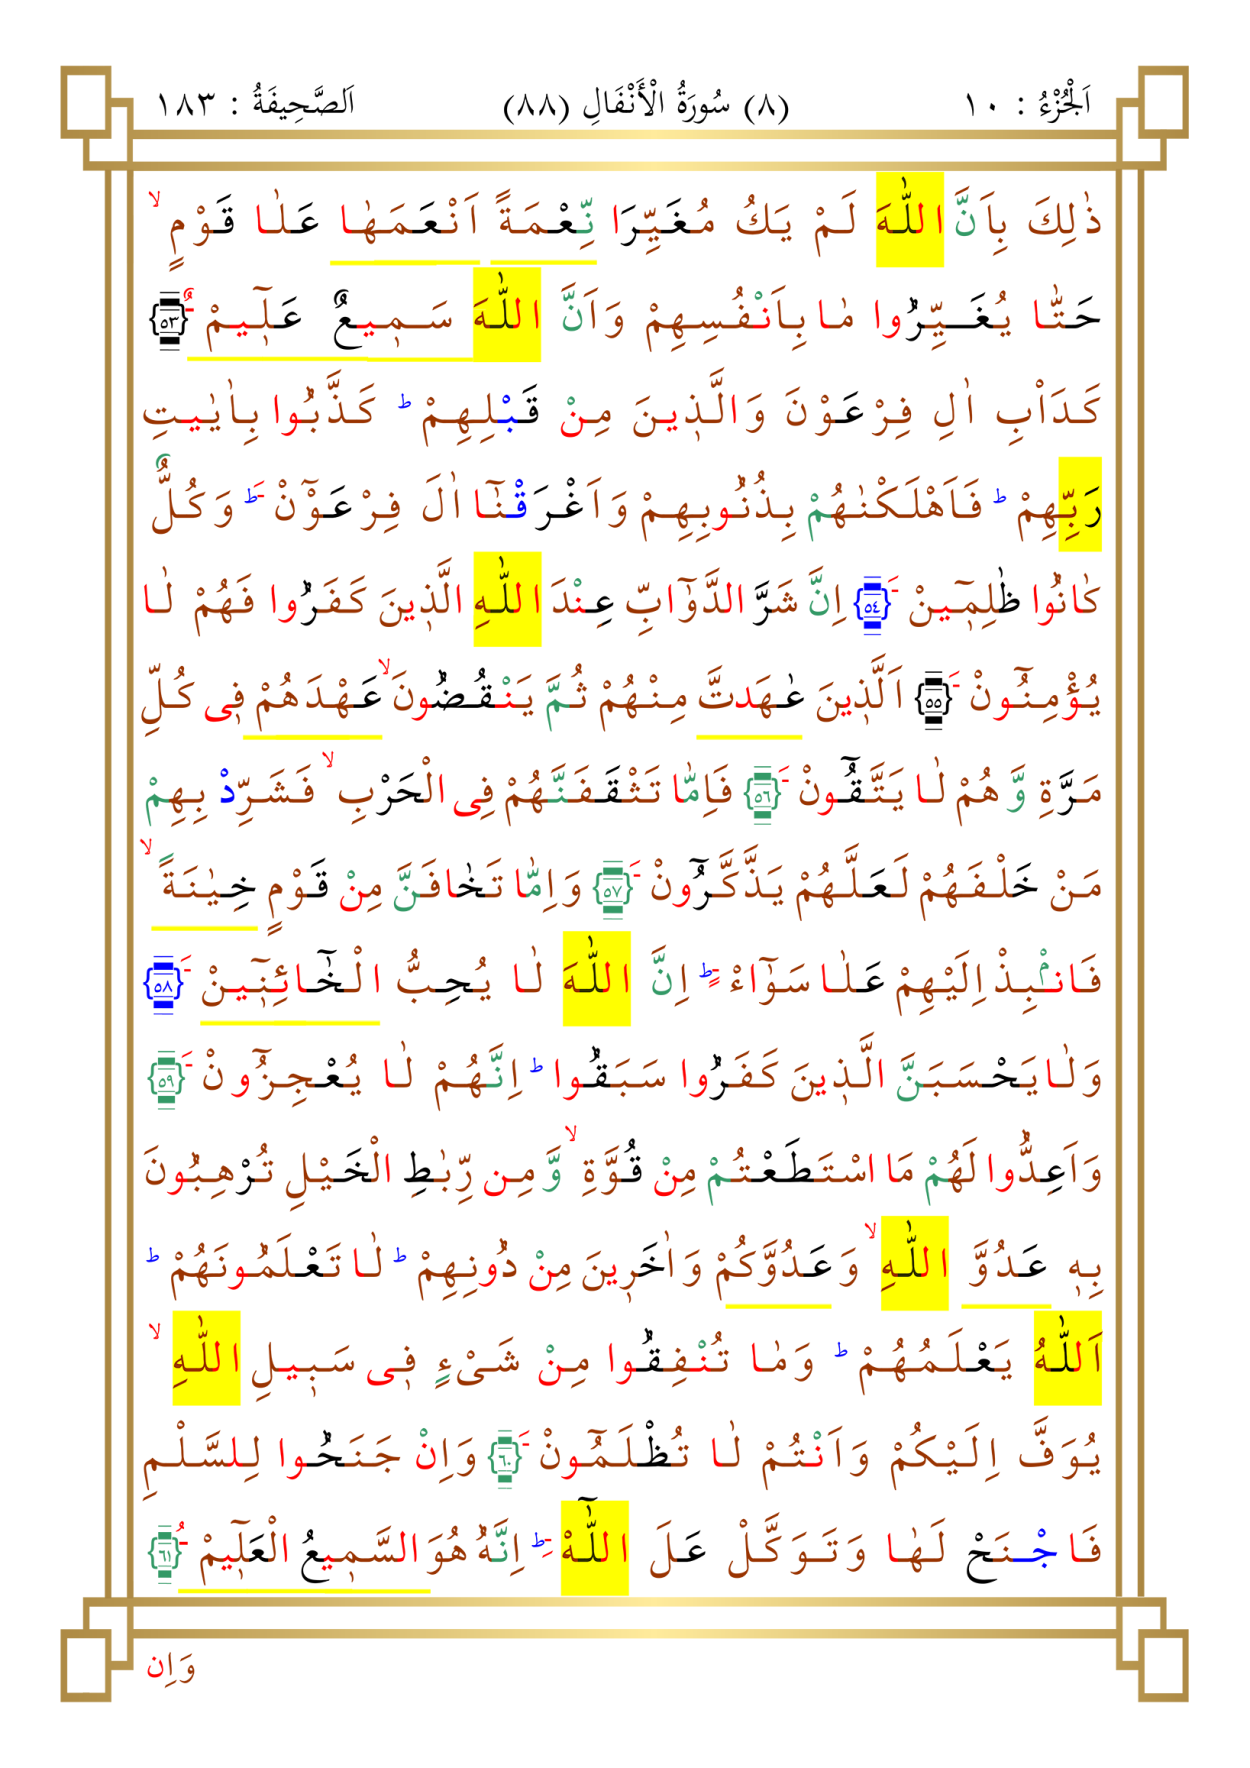 اَلْجُزْءُ : ١٠
(٨) سُورَةُ الْأَنْفَالِ (٨٨)
اَلصَّحِيفَةُ : ١٨٣
ذٰلِكَ بِاَنَّ اللّٰهَ لَمْ يَكُ مُغَيِّرًا نِّعْمَةً اَنْعَمَهٰا عَلٰا قَوْمٍ ۙ
حَتّٰا يُغَيِّرُوا مٰا بِاَنْفُسِهِمْ وَاَنَّ اللّٰهَ سَمِيعٌ عَلِيمْ ﴿٥٣﴾
كَدَاْبِ اٰلِ فِرْعَوْنَ وَالَّذِينَ مِنْ قَبْلِهِمْ ۜ كَذَّبُوا بِاٰيٰيتِ
رَبِّهِمْ ۜ فَاَهْلَكْنٰهُمْ بِذُنُوبِهِمْ وَاَغْرَقْنٰٓا اٰلَ فِرْعَوْنْ ۜ وَكُلٌّ
كٰانُوا ظٰلِمِينْ ﴿٥٤﴾ اِنَّ شَرَّ الدَّوَٓابِّ عِنْدَ اللّٰهِ الَّذِينَ كَفَرُوا فَهُمْ لٰا
يُؤْمِنُونْ ﴿٥٥﴾ اَلَّذِينَ عٰهَدتَّ مِنْهُمْ ثُمَّ يَنْقُضُونَ ۙ عَهْدَهُمْ فِى كُلِّ
مَرَّةٍ وَّهُمْ لٰا يَتَّقُونْ ﴿٥٦﴾ فَاِمّٰا تَثْقَفَنَّهُمْ فِى الْحَرْبِ ۙ فَشَرِّدْ بِهِمْ
مَنْ خَلْفَهُمْ لَعَلَّهُمْ يَذَّكَّرُونْ ﴿٥٧﴾ وَاِمّٰا تَخٰافَنَّ مِنْ قَوْمٍ خِيٰنَةً ۙ
فَانْۢبِذْ اِلَيْهِمْ عَلٰا سَوَٓاءْ ۜ اِنَّ اللّٰهَ لٰا يُحِبُّ الْخَٓائِنِينْ ﴿٥٨﴾
وَلٰا يَحْسَبَنَّ الَّذِينَ كَفَرُوا سَبَقُوا ۜ اِنَّهُمْ لٰا يُعْجِزُونْ ﴿٥٩﴾
وَاَعِدُّوا لَهُمْ مَا اسْتَطَعْتُمْ مِنْ قُوَّةٍ ۙ وَّمِن رِّبٰطِ الْخَيْلِ تُرْهِبُونَ
بِهِ عَدُوَّ اللّٰهِ ۙ وَعَدُوَّكُمْ وَاٰخَرِينَ مِنْ دُونِهِمْ ۜ لٰا تَعْلَمُونَهُمْ ۜ
اَللّٰهُ يَعْلَمُهُمْ ۜ وَمٰا تُنْفِقُوا مِنْ شَىْءٍ فِى سَبِيلِ اللّٰهِ ۙ
يُوَفَّ اِلَيْكُمْ وَاَنْتُمْ لٰا تُظْلَمُونْ ﴿٦٠﴾ وَاِنْ جَنَحُوا لِلسَّلْمِ
فَاجْنَحْ لَهٰا وَتَوَكَّلْ عَلَ اللّٰهْ ۜ اِنَّهُ هُوَ السَّمِيعُ الْعَلِيمْ ﴿٦١﴾
وَاِن